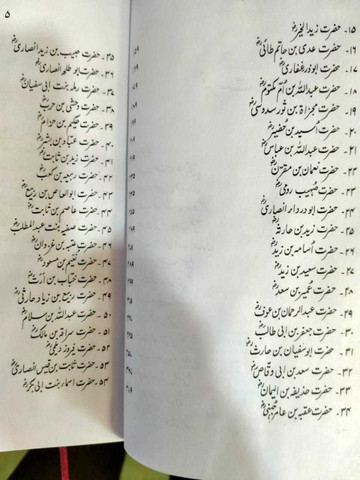 ۱۵- حضرت زید الخیرؓ
۱۶- حضرت عدی بن حاتم طائیؓ
۱۷- حضرت ابوذر غفاریؓ
۱۸- حضرت عبداللہ بن اُم مکتومؓ
۱۹- حضرت مجزاۃ بن ثور سدوسیؓ
۲۰- حضرت اُسید بن حُضیرؓ
۲۱- حضرت عبداللہ بن عباسؓ
۲۲- حضرت نعمان بن مقرّنؓ
۲۳- حضرت صُہیب رومیؓ
۲۴- حضرت ابو درداء انصاریؓ
۲۵- حضرت زید بن حارثہؓ
۲۶- حضرت اُسامہ بن زیدؓ
۲۷- حضرت سعید بن زیدؓ
۲۸- حضرت عُمیر بن سعدؓ
۲۹- حضرت عبدالرحمان بن عوفؓ
۳۰- حضرت جعفر بن ابی طالبؓ
۳۱- حضرت ابوسفیان بن حارثؓ
۳۲- حضرت سعد بن ابی وقاصؓ
۳۳- حضرت حذیفہ بن الیمانؓ
۳۴- حضرت عقبہ بن عامر جُہنیؓ
۵
۳۵- حضرت حبیب بن زید انصاریؓ
۳۶- حضرت ابو طلحہ انصاریؓ
۳۷- حضرت رملہ بنت ابی سفیانؓ
۳۸- حضرت وحشی بن حربؓ
۳۹- حضرت حکیم بن حزامؓ
۴۰- حضرت عبّاد بن بشرؓ
۴۱- حضرت زید بن ثابتؓ
۴۲- حضرت ربیعہ بن کعبؓ
۴۳- حضرت ابوالعاص بن ربیعؓ
۴۴- حضرت عاصم بن ثابتؓ
۴۵- حضرت صفیہ بنت عبدالمطلبؓ
۴۶- حضرت عتبہ بن غزوانؓ
۴۷- حضرت نُعیم بن مسعودؓ
۴۸- حضرت خبّاب بن ارتؓ
۴۹- حضرت ربیع بن زیاد حارثیؓ
۵۰- حضرت عبداللہ بن سلامؓ
۵۱- حضرت سراقہ بن مالکؓ
۵۲- حضرت فیروز دیلمیؓ
۵۳- حضرت ثابت بن قیس انصاریؓ
۵۴- حضرت اسماء بنت ابی بکرؓ